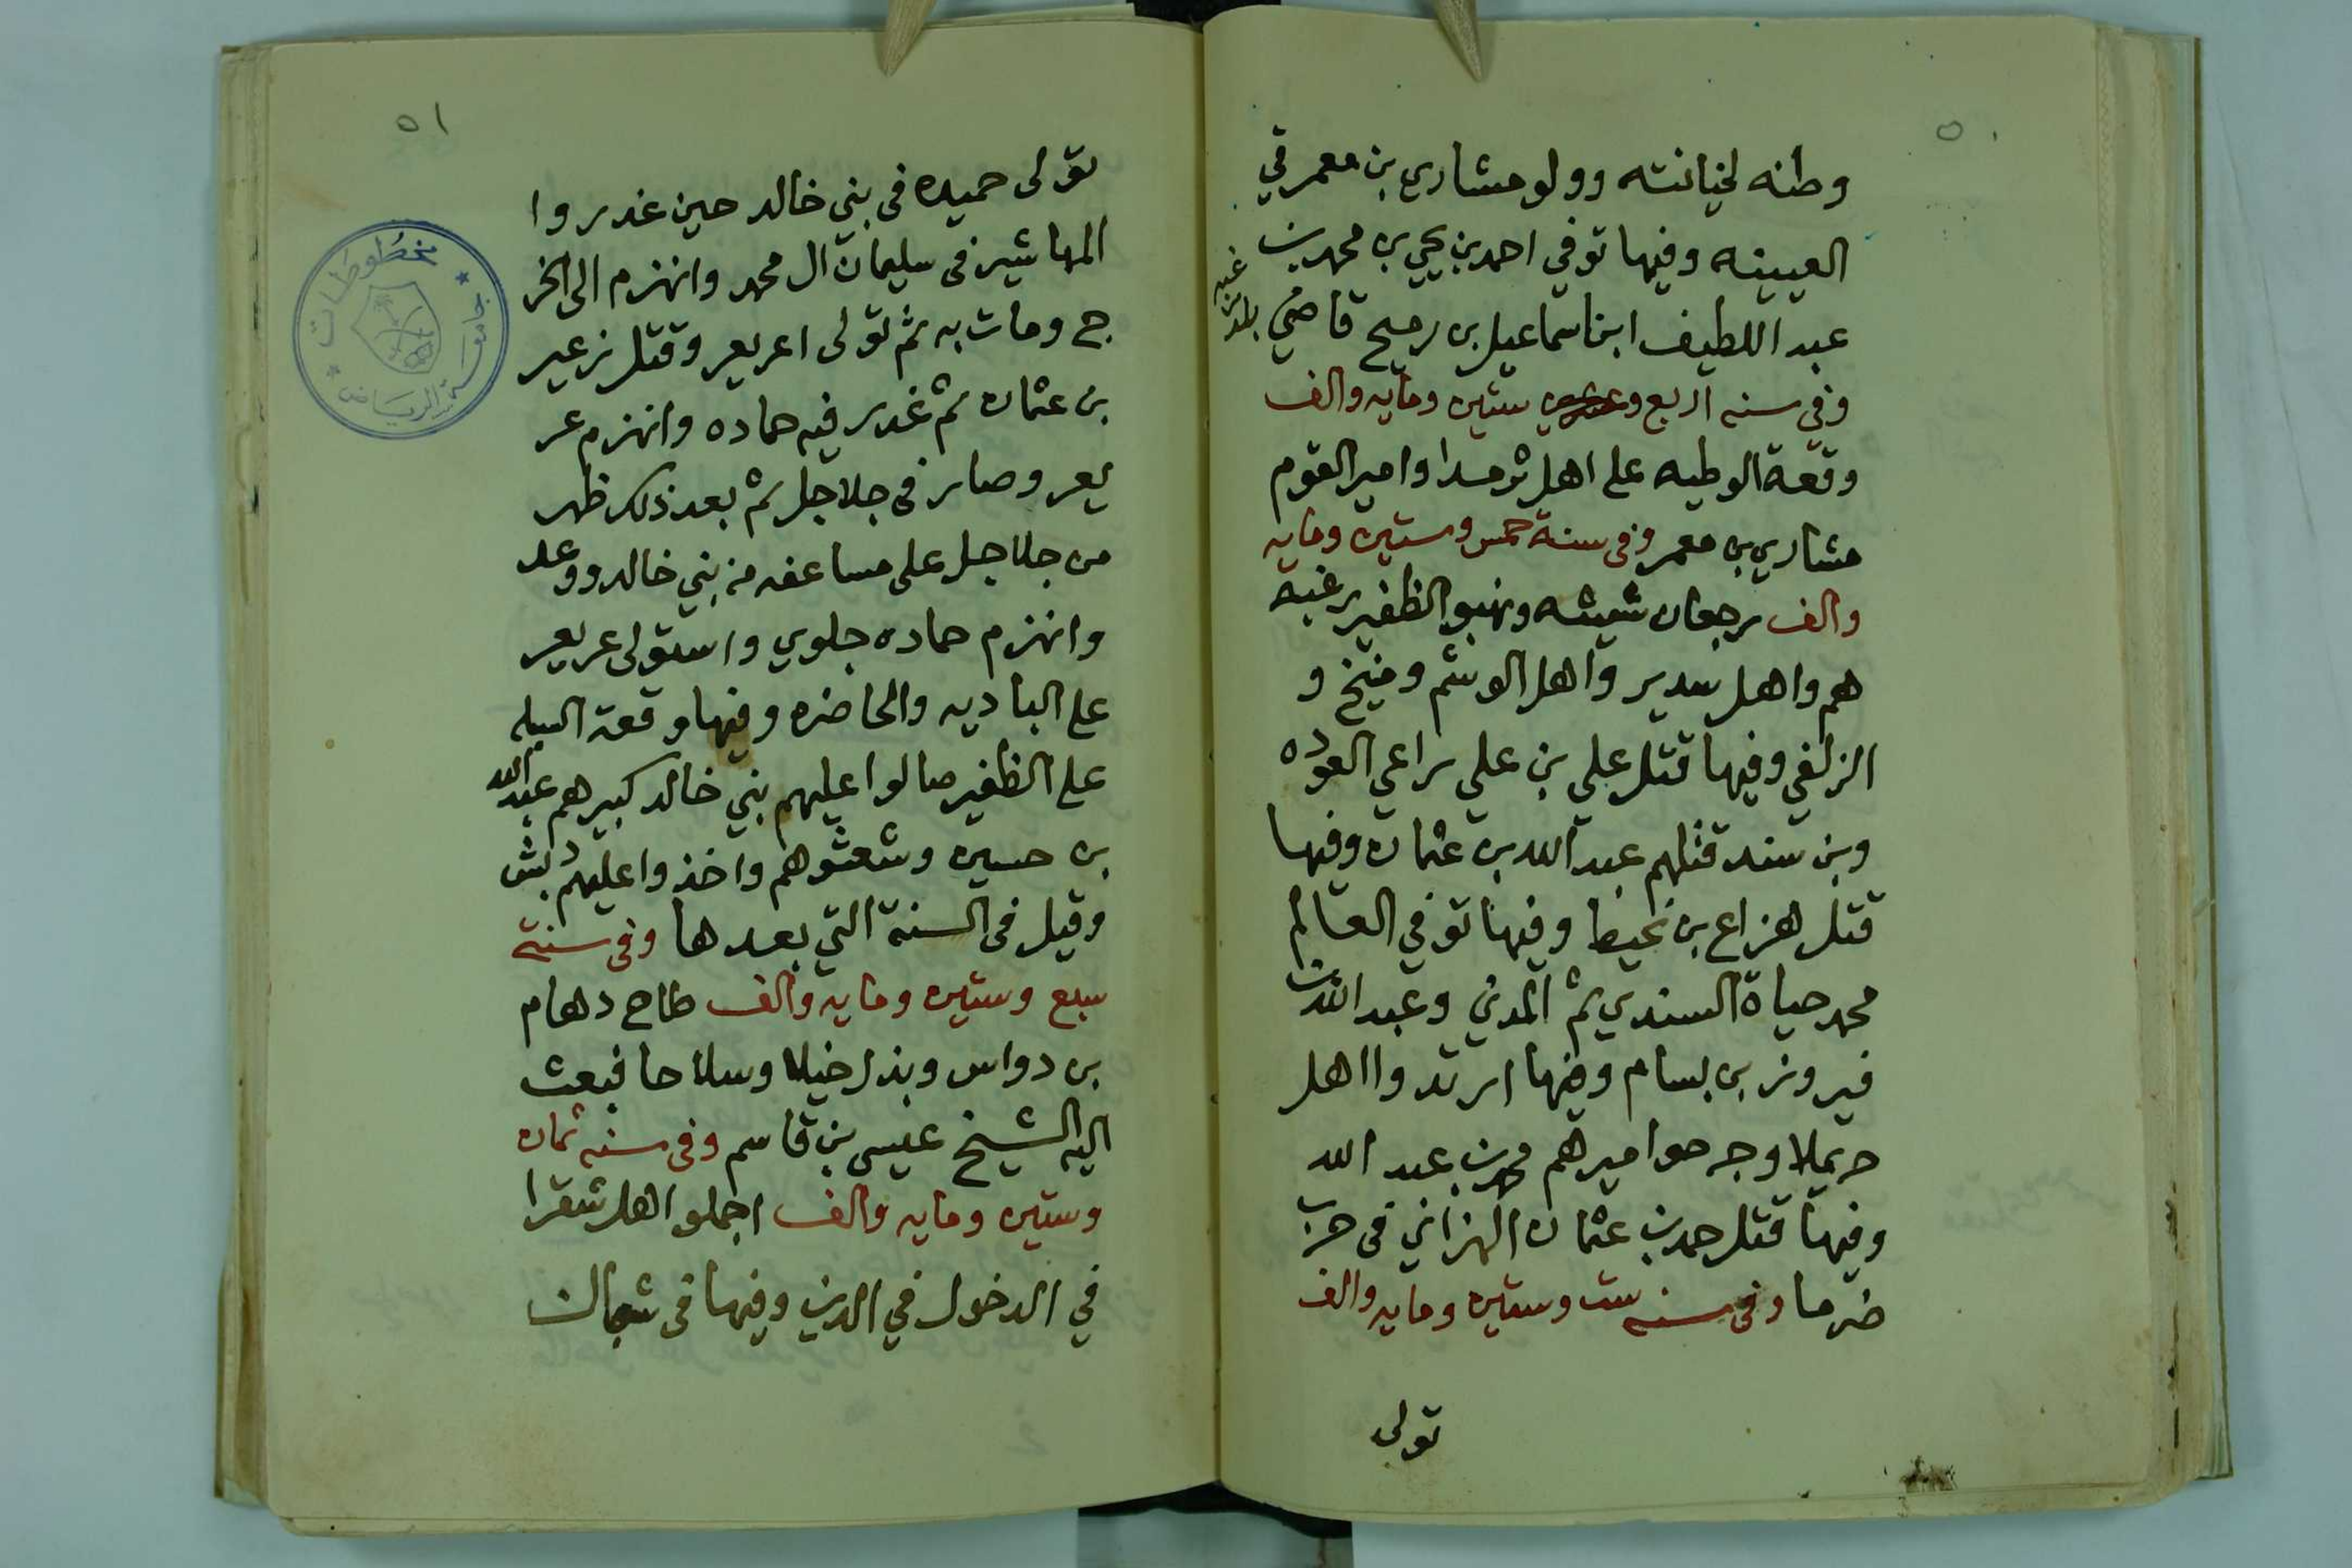 ٥٠
وطنه لخيانته وولو مشاري بن معمر في
العيينه وفيها توفي احمد بن يحيى بن محمد بن
عبد اللطيف ابن اسماعيل بن رميح قاضي بلد
وفي سنه اربع و ستين ومايه والف
وقعة الوطيه على اهل ثرمدا وامير القوم
مشاري بن معمر وفي سنة خمس وستين ومايه
والف رجعان شيشه ونهبو الظفير رغبه
هم واهل سدير واهل الوشم ومنيخ و
الزلفي وفيها قتل علي بن علي راعي العوده
وبن سند قتلهم عبد الله بن عثمان وفيها
قتل هزاع بن نحيط وفيها توفي العالم
محمد حياة السندي ثم المدني وعبد الله بن
فيروز بن بسام وفيها ارتدوا اهل
حريملا وجرحوا ميرهم محمد بن عبد الله
وفيها قتل حمد بن عثمان الهزاني في حرب
ضرما وفى سنه ست وستين ومايه والف
تولى
٥١
تولى حميده في بني خالد حين غدروا
المهاشير في سليمان ال محمد وانهزم الى الخر
ج ومات به ثم تولى اعريعر وقتل زعير
بن عثمان ثم غدر فيه حماده وانهزم عر
يعر وصار في جلاجل ثم بعد ذلك ظهر
من جلاجل على مساعفه من بني خالد ووعد
وانهزم حماده جلوي واستولى عريعر
على الباديه والحاضره وفيها وقعة السبله
على الظفير صالوا عليهم بني خالد كبيرهم عبد الله
بن حسين وشعثوهم واخذوا عليهم دبش
وقيل في السنة التي بعدها وفى سنة
سبع وستين ومايه والف طاح دهام
بن دواس وبذل خيلا وسلاحا فبعث
اليه الشيخ عيسى بن قاسم وفى سنه ثمان
وستين ومايه والف اجملو اهل شقرا
في الدخول في الدين وفيها في شعبان
مخطوطات
جامعة الرياض